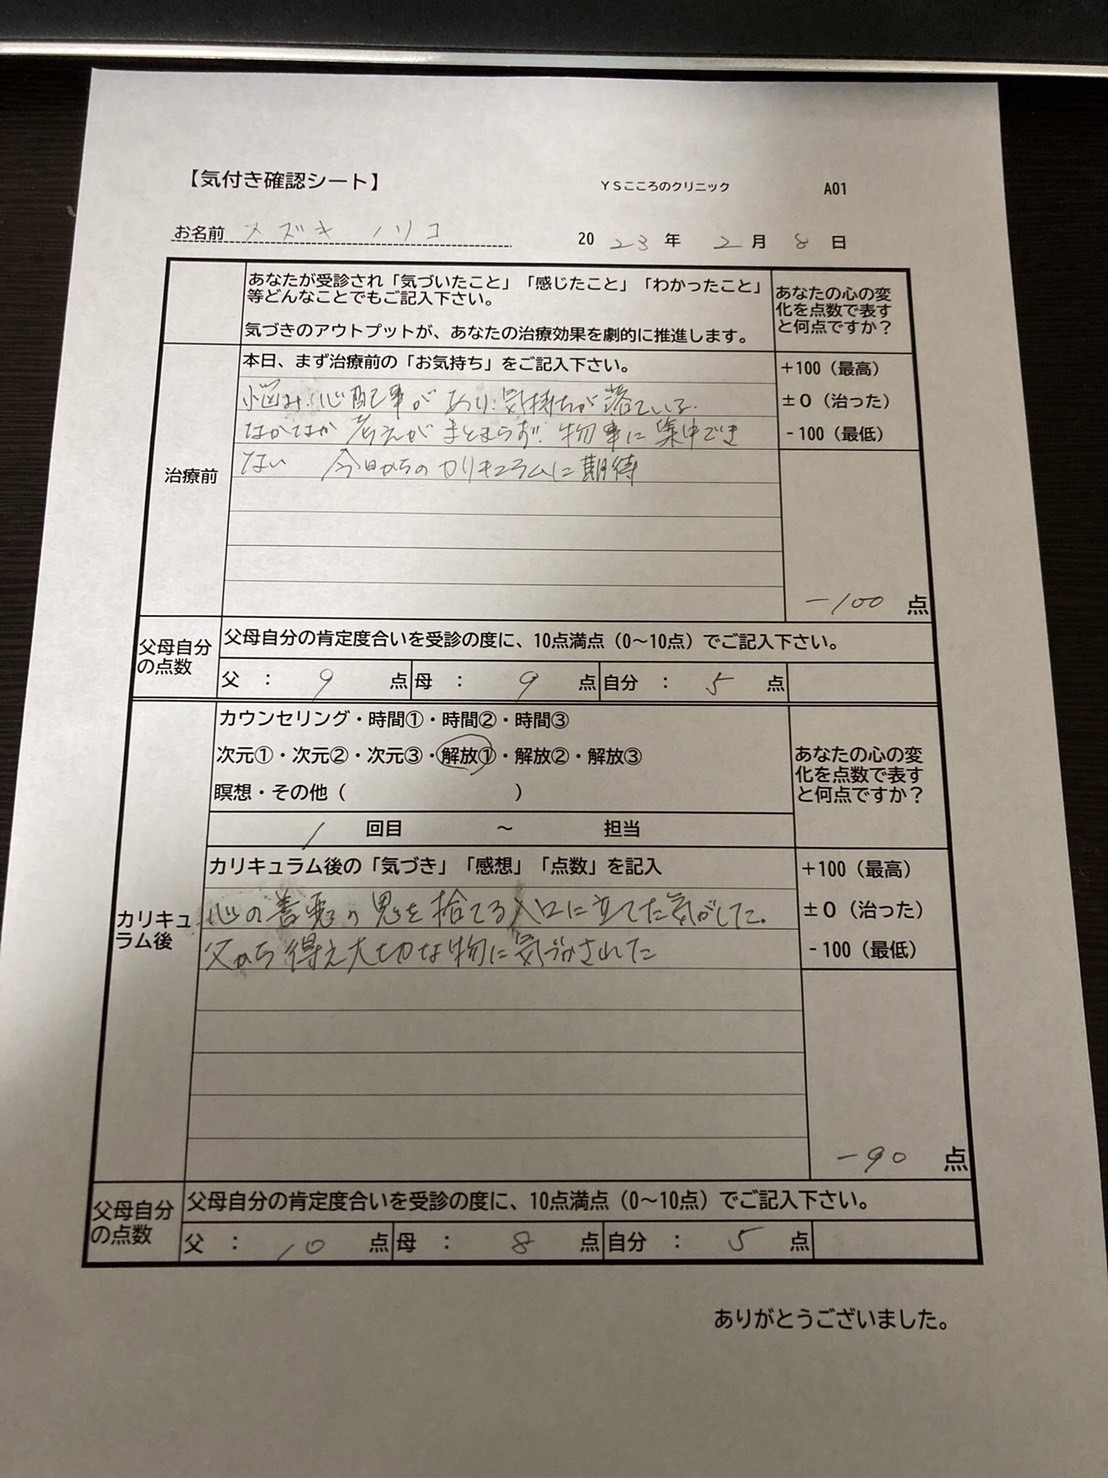 【気付き確認シート】 ＹＳこころのクリニック A01
お名前 スズキ ノリコ 2023年 2月 8日
あなたが受診され「気づいたこと」「感じたこと」「わかったこと」
等どんなことでもご記入下さい。
気づきのアウトプットが、あなたの治療効果を劇的に推進します。
あなたの心の変
化を点数で表す
と何点ですか？
治療前
本日、まず治療前の「お気持ち」をご記入下さい。
悩み、心配事があり、気持ちが落ている。
なかなか 考えがまとまらず、物事に集中でき
ない 今日からのカリキュラムに期待
+100（最高）
±０（治った）
-100（最低）
-100 点
父母自分
の点数
父母自分の肯定度合いを受診の度に、10点満点（0～10点）でご記入下さい。
父 ： 9 点 母 ： 9 点 自分 ： 5 点
カウンセリング・時間①・時間②・時間③
次元①・次元②・次元③・解放①・解放②・解放③
瞑想・その他（ ）
1 回目 ～ 担当
あなたの心の変
化を点数で表す
と何点ですか？
カリキュ
ラム後
カリキュラム後の「気づき」「感想」「点数」を記入
心の善悪の悪を捨てる入口に立てた気がした。
父から得え大切な物に気づかされた
+100（最高）
±０（治った）
-100（最低）
-90 点
父母自分
の点数
父母自分の肯定度合いを受診の度に、10点満点（0～10点）でご記入下さい。
父 ： 10 点 母 ： 8 点 自分 ： 5 点
ありがとうございました。